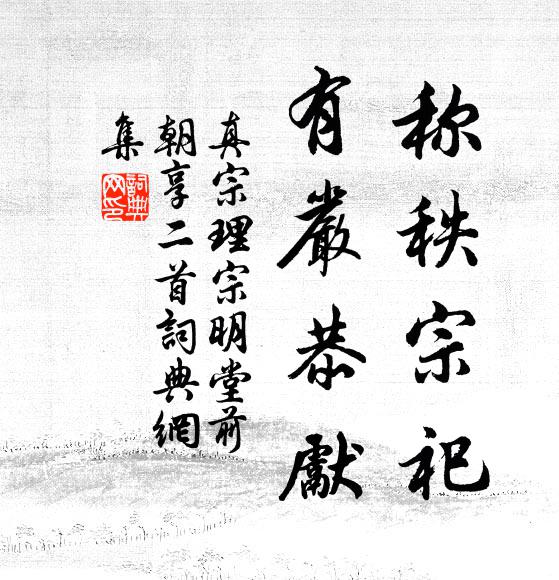 称秩宗祀
有嚴恭獻
真宗理宗明堂前
朝享二首詞典網
集
詞典网印